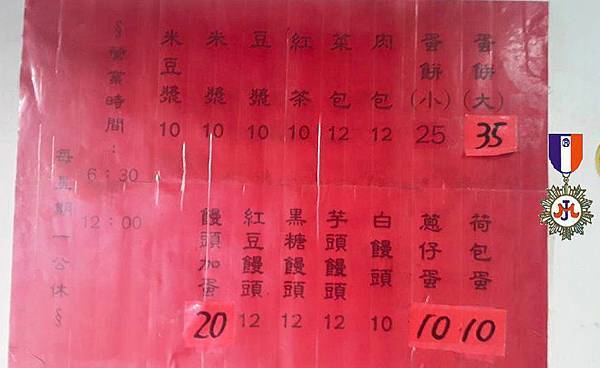 蛋餅(大) 35
蛋餅(小) 25
肉包 12
菜包 12
紅茶 10
豆漿 10
米漿 10
米豆漿 10
荷包蛋 10
蔥仔蛋 10
白饅頭 10
芋頭饅頭 12
黑糖饅頭 12
紅豆饅頭 12
饅頭加蛋 20
§營業時間:
6:30
12:00
每星期一公休§